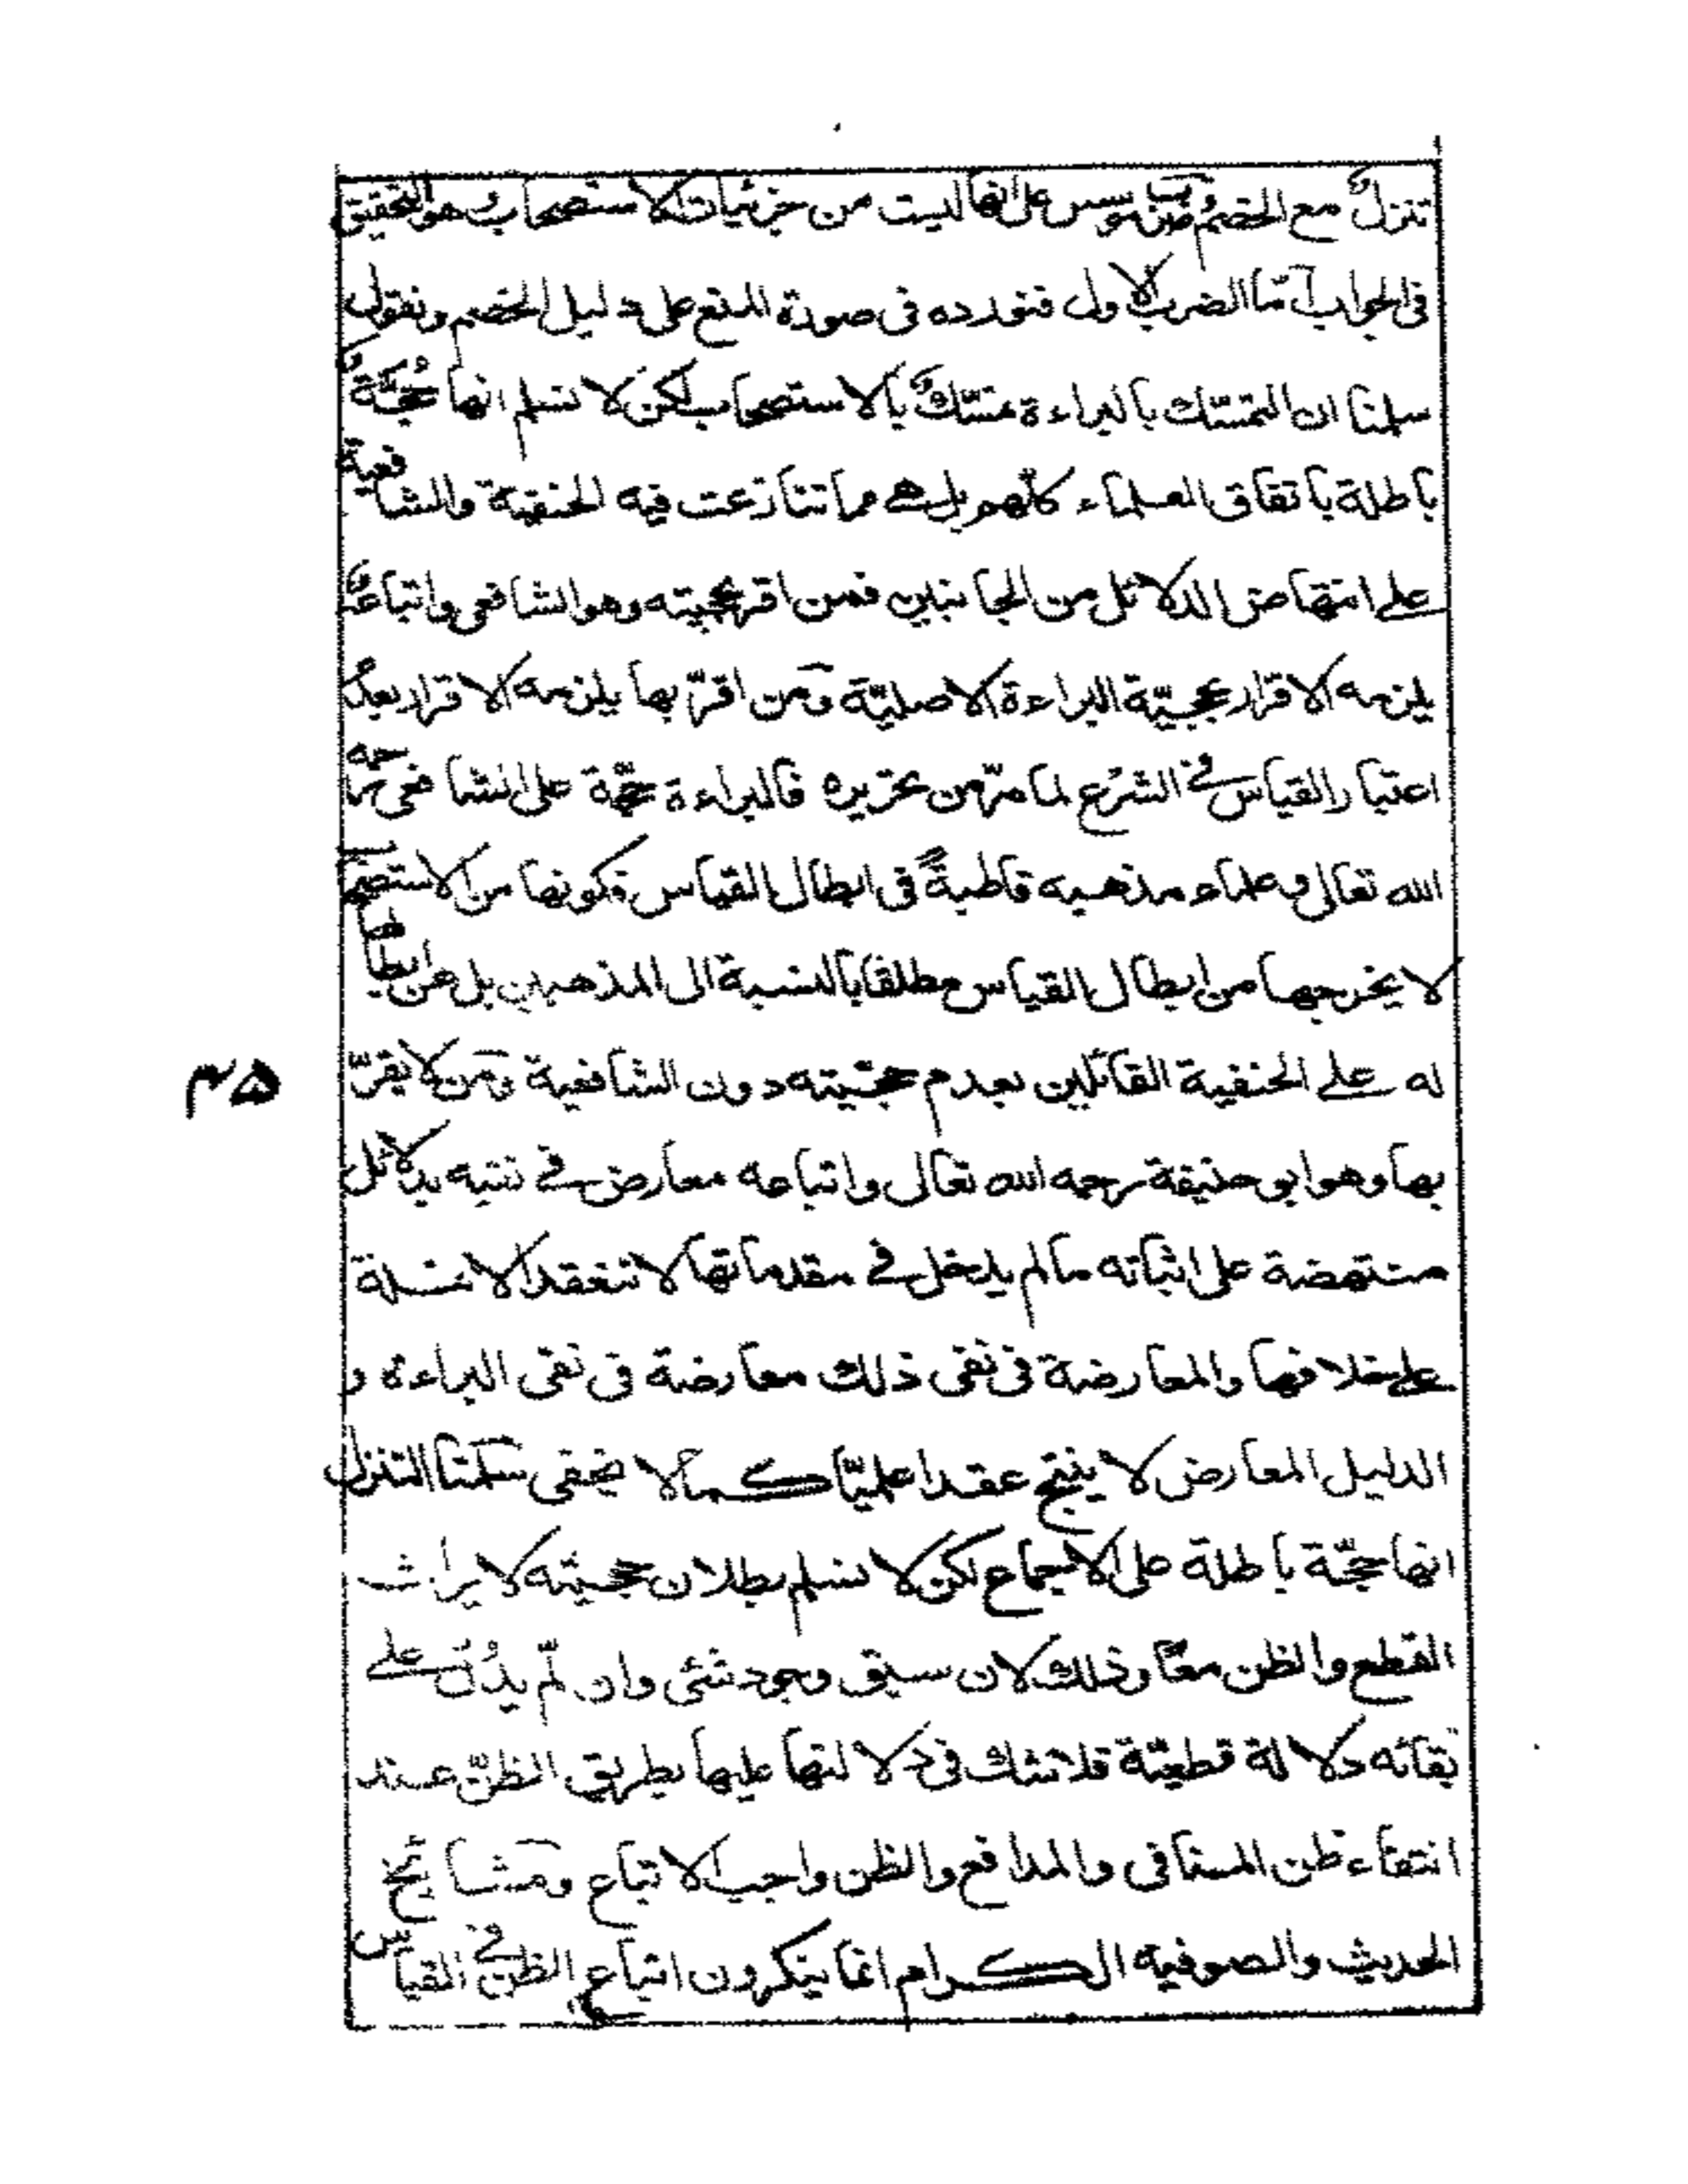 تنزل مع الخصم وضرب موسس على انها ليست من جزئيات الاستصحاب وهو التحقيق
فى الجواب آمّا الضرب الاول فنورده فى صورة المنع على دليل الخصم ونقول
سلمنا ان التمسّك بالبراءة تمسّكٌ بالاستصحاب لكن لا نسلم انها حُجّةٌ
باطلة باتفاق العلماء كلّهم بل هے مما تنازعت فيه الحنفية والشافعية
علے انتهاض الدلائل من الجانبين فمن اقر بحجيته وهو الشافعى واتباعهُ
يلزمه الاقرار بحجيّة البراءة الاصليّة ومن اقرّ بها يلزمه الاقرار بعدم
اعتبار القياس فے الشرع لما مرّ من تحريره فالبراءة حجّة على الشافعى رحمه
الله تعالى وعلماء مذهبه قاطبةً فى ابطال القياس فكونها من الاستصحاب
لا يخرجها من ابطال القياس مطلقا بالنسبة الى المذهبين بل عن ابطالها
له علے الحنفية القائلين بعدم حجيّته دون الشافعية ومن لا يقرّ
بها وهو ابو حنيفة رحمه الله تعالى واتباعه معارض فے نفيه بدلائل
منتهضة على اثباته مالم يدخل فے مقدماتها لا تنعقد الامثلة
علے خلافها والمعارضة فى نفى ذلك معارضة فى نفى البراءة و
الدليل المعارض لا ينتج عقدا علميّا كما لا يخفى سلّمنا التنزل
انها حجّة باطلة على الاجماع لكن لا نسلم بطلان حجيّته لايراث
القطع والظن معًا وذلك لان سبق وجود شئى وان لّم يدُلّ علے
بقائه دلالة قطعيّة فلا شك فى دلالتها عليها بطريق الظنّ عند
انتفاء ظن المنافى والمدافع والظن واجب الاتباع ومشائخ
الحديث والصوفيه الكرام انما ينكرون اتباع الظن فے القياس
۳۵